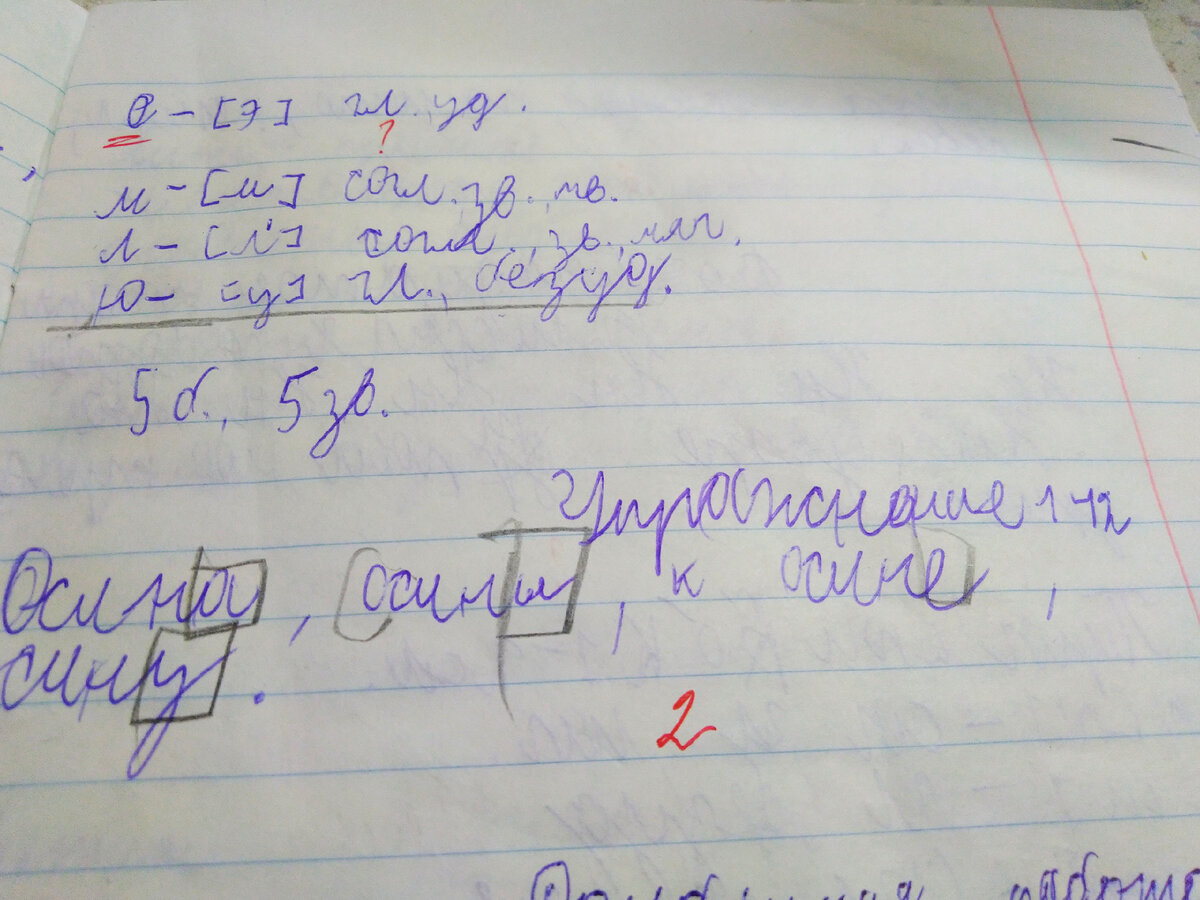 е – [э] гл. уд.
?
м – [м] согл. зв., тв.
л – [л'] согл., зв., мяг.
ю – [у] гл., безуд.
5 б., 5 зв.
Упражнение 172
Осина, осины, к осине,
сину.
2
работа